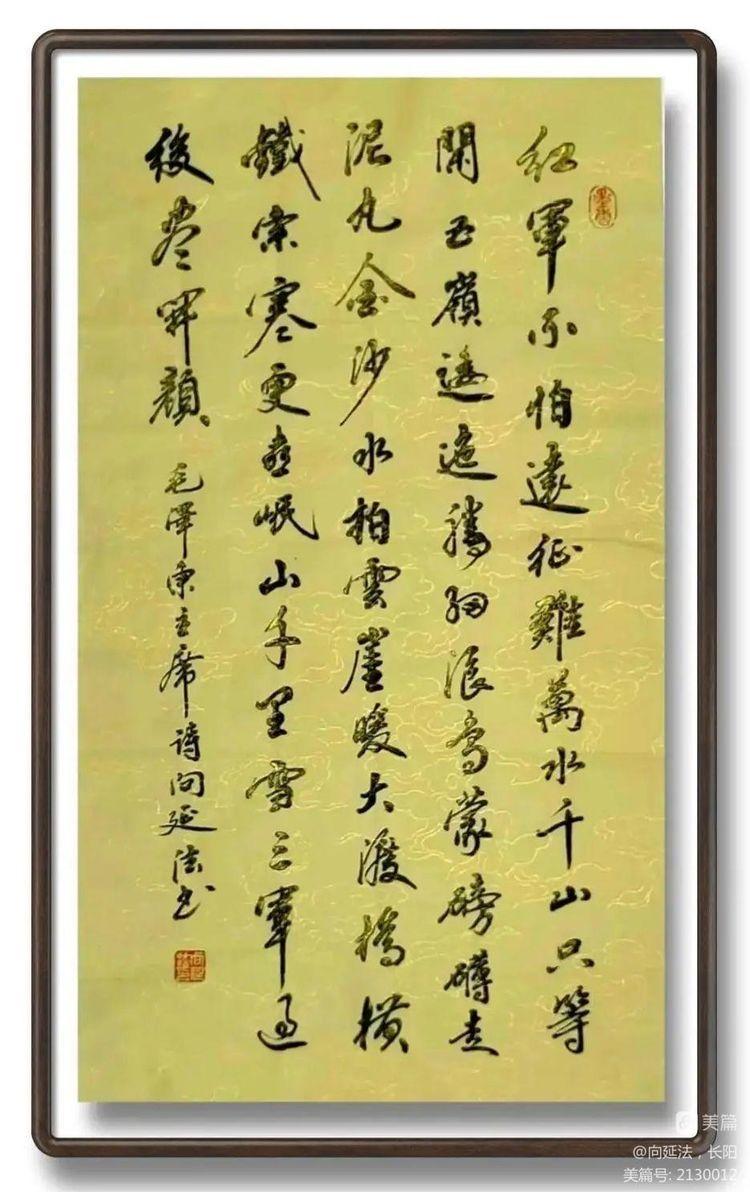 紅軍不怕遠征難萬水千山只等
閑五嶺逶迤騰細浪烏蒙磅礴走
泥丸金沙水拍雲崖暖大渡橋橫
鐵索寒更喜岷山千里雪三軍過
後盡開顏 毛澤東主席詩向延法书
美篇
@向延法，长阳
美篇号: 2130012